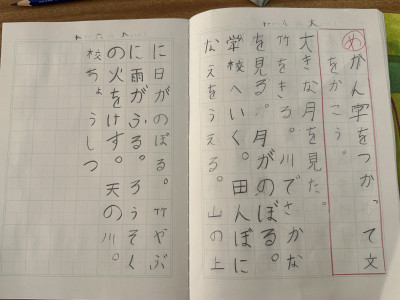 めかん字をつかって文
をかこう。
大きな月を見た。
竹をきる。川でさかな
を見る。月がのぼる。
学校へいく。田んぼに
なえをうえる。山の上
に日がのぼる。竹やぶ
に雨がふる。ろうそく
の火をけす。天の川。
校ちょうしつ